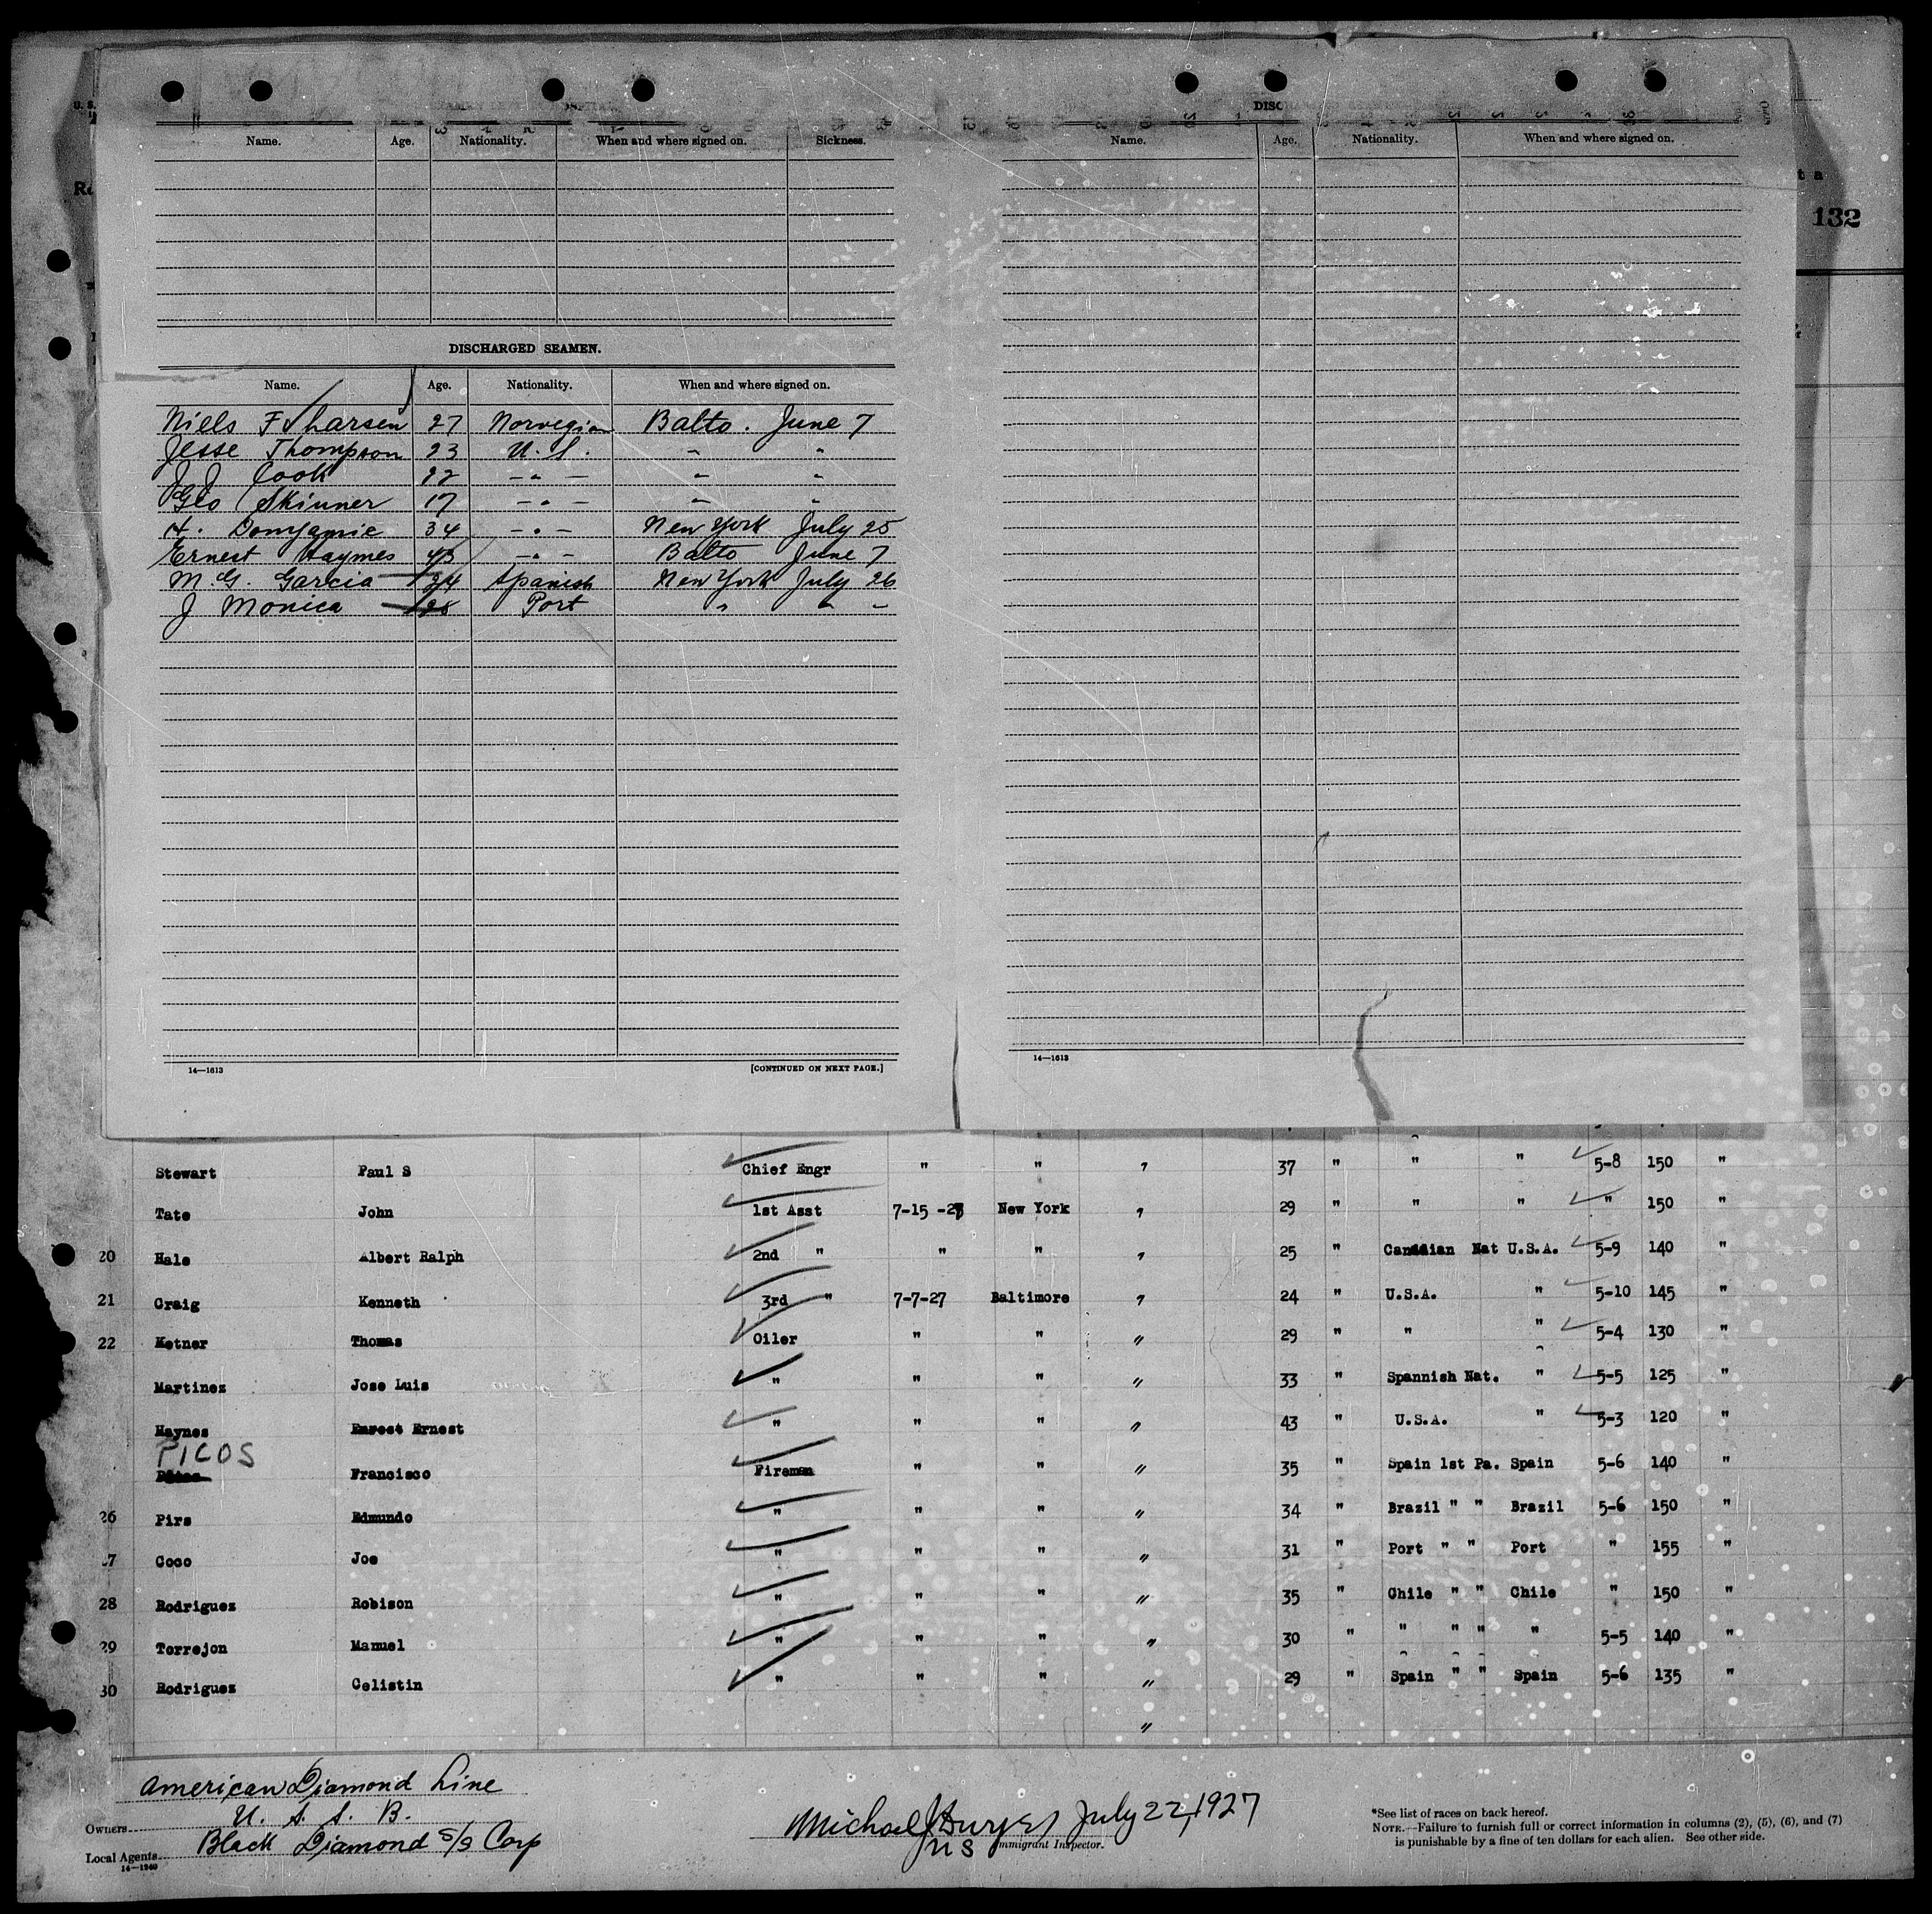 DISC
Name. Age. Nationality. When and where signed on. Sickness.
Name. Age. Nationality. When and where signed on.
132
DISCHARGED SEAMEN.
Name. Age. Nationality. When and where signed on.
Niels F Larsen 27 Norwegian Balto. June 7
Jesse Thompson 23 U.S. " "
J J Cook 22 - " - " "
Geo Skinner 17 - " - " "
H. 34 - " - New York July 25
Ernest Haymes 43 - " - Balto June 7
M. G. Garcia 24 Spanish New York July 26
J Monica 28 Port " " "
14—1613 [CONTINUED ON NEXT PAGE.]
14—1613
Stewart Paul S Chief Engr " " " 37 " " " 5-8 150 "
Tate John 1st Asst 7-15-27 New York " 29 " " " " 150 "
20 Hale Albert Ralph 2nd " " " " 25 " Canadian Nat U.S.A. 5-9 140 "
21 Craig Kenneth 3rd " 7-7-27 Baltimore " 24 " U.S.A. " 5-10 145 "
22 Ketner Thomas Oiler " " " 29 " " " 5-4 130 "
Martinez Jose Luis " " " " 33 " Spannish Nat. " 5-5 125 "
Haynes Ernest " " " " 43 " U.S.A. " 5-3 120 "
PICOS
Francisco Fireman " " " 35 " Spain 1st Pa. Spain 5-6 140 "
26 Pirs Edmundo " " " " 34 " Brazil " " Brazil 5-6 150 "
27 Coco Joe " " " " 31 " Port " " Port " 155 "
28 Rodriguez Robison " " " " 35 " Chile " " Chile " 150 "
29 Torrejon Manuel " " " " 30 " " " " " 5-5 140 "
30 Rodriguez Celistin " " " " 29 " Spain " " Spain 5-6 135 "
"
American Diamond Line
Owners U. S. S. B.
Local Agents Black Diamond S/S Corp
14—1240
Michael J July 22, 1927
Immigrant Inspector.
*See list of races on back hereof.
NOTE.—Failure to furnish full or correct information in columns (2), (5), (6), and (7)
is punishable by a fine of ten dollars for each alien. See other side.